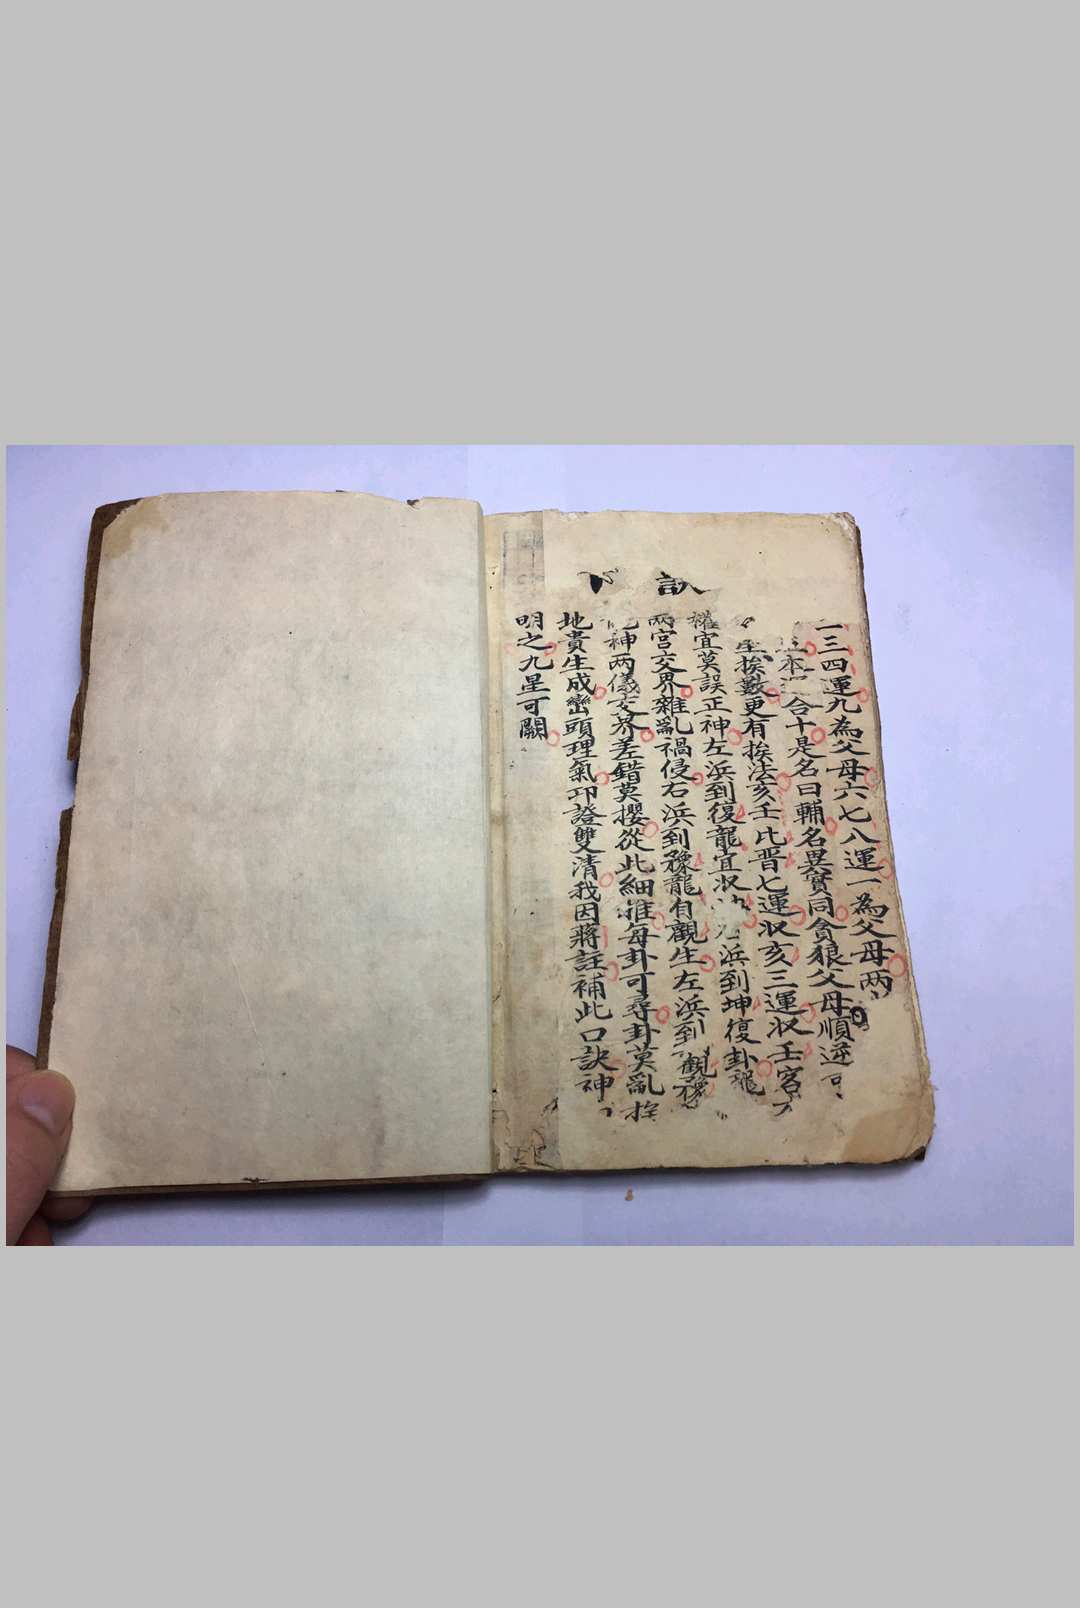 訣
一三四運九為父母六七八運一為父母兩
本運合十是名曰輔名異實同貪狼父母順逆
挨數更有挨法亥壬比晋七運収亥三運収壬客
權宜莫誤正神左浜到復龍宜収浜到坤復卦龍
兩宮交界雜亂禍侵右浜到豫龍自觀生左浜到觀豫
神两儀交界差錯莫攖從此細推每卦可尋卦莫亂挨
地貴生成巒頭理氣印證雙清我因蔣註補此口訣神
明之九星可闢